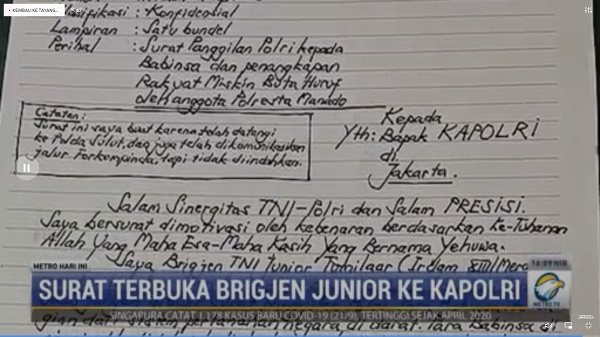 KEMBALI KE TAYANG...
Klasifikasi : Konfidensial
Lampiran : Satu bundel
Perihal : Surat Panggilan Polri kepada
Babinsa dan penangkapan
Rakyat Miskin Buta Huruf
oleh anggota Polresta Manado
Catatan:
Surat ini saya buat karena telah datangi
ke Polda Sulut, dan juga telah dikomunikasikan
jalur Forkopimda, tapi tidak diindahkan.
Kepada
Yth: Bapak KAPOLRI
di
Jakarta.
Salam Sinergitas TNI-Polri dan Salam PRESISI.
Saya bersurat dimotivasi oleh kebenaran berdasarkan Ke-Tuhanan
Allah Yang Maha Esa-Maha Kasih Yang Bernama Yehuwa.
Saya Brigjen TNI Junior Tumilaar (Irdam XIII/Merd
METRO HARI INI
16:09 WIB
SURAT TERBUKA BRIGJEN JUNIOR KE KAPOLRI
METRO TV
SINGAPURA CATAT 1.178 KASUS BARU COVID-19 (21/9), TERTINGGI SEJAK APRIL 2020
gian dari sistem pertahanan negara di darat. Para Babinsa